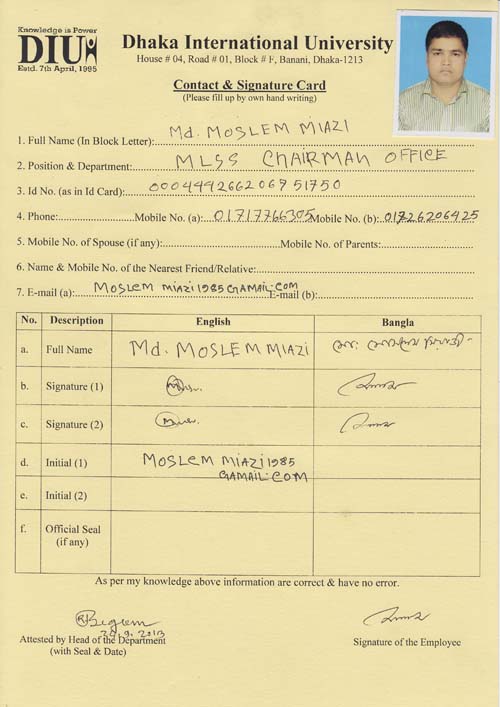 Knowledge is Power
DIU
Estd. 7th April, 1995
Dhaka International University
House # 04, Road # 01, Block # F, Banani, Dhaka-1213
Contact & Signature Card
(Please fill up by own hand writing)
1. Full Name (In Block Letter): Md. MOSLEM MIAZI
2. Position & Department: MLSS CHAIRMAN OFFICE
3. Id No. (as in Id Card): 000449266206951750
4. Phone: Mobile No. (a): 01717766305 Mobile No. (b): 01726206425
5. Mobile No. of Spouse (if any): Mobile No. of Parents:
6. Name & Mobile No. of the Nearest Friend/Relative:
7. E-mail (a): MOSLEM MIAZI1985GAMAIL.COM E-mail (b):
No. Description English Bangla
a. Full Name Md. MOSLEM MIAZI
b. Signature (1)
c. Signature (2)
d. Initial (1) MOSLEM MIAZI1985
GAMAIL.COM
e. Initial (2)
f. Official Seal
(if any)
As per my knowledge above information are correct & have no error.
Begum
Attested by Head of the Department
(with Seal & Date)
Signature of the Employee